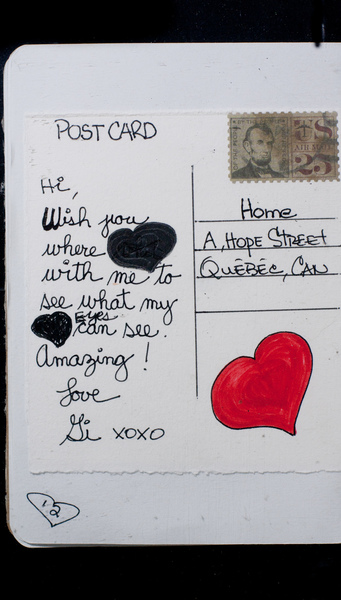 POST CARD
Hi,
Wish you
where
with me to
see what my
Eyes
can see.
Amazing!
Love
Gi xoxo
Home
A, HOPE STREET
QUÉBÉC, CAN
US
AIR MAIL
25
'12